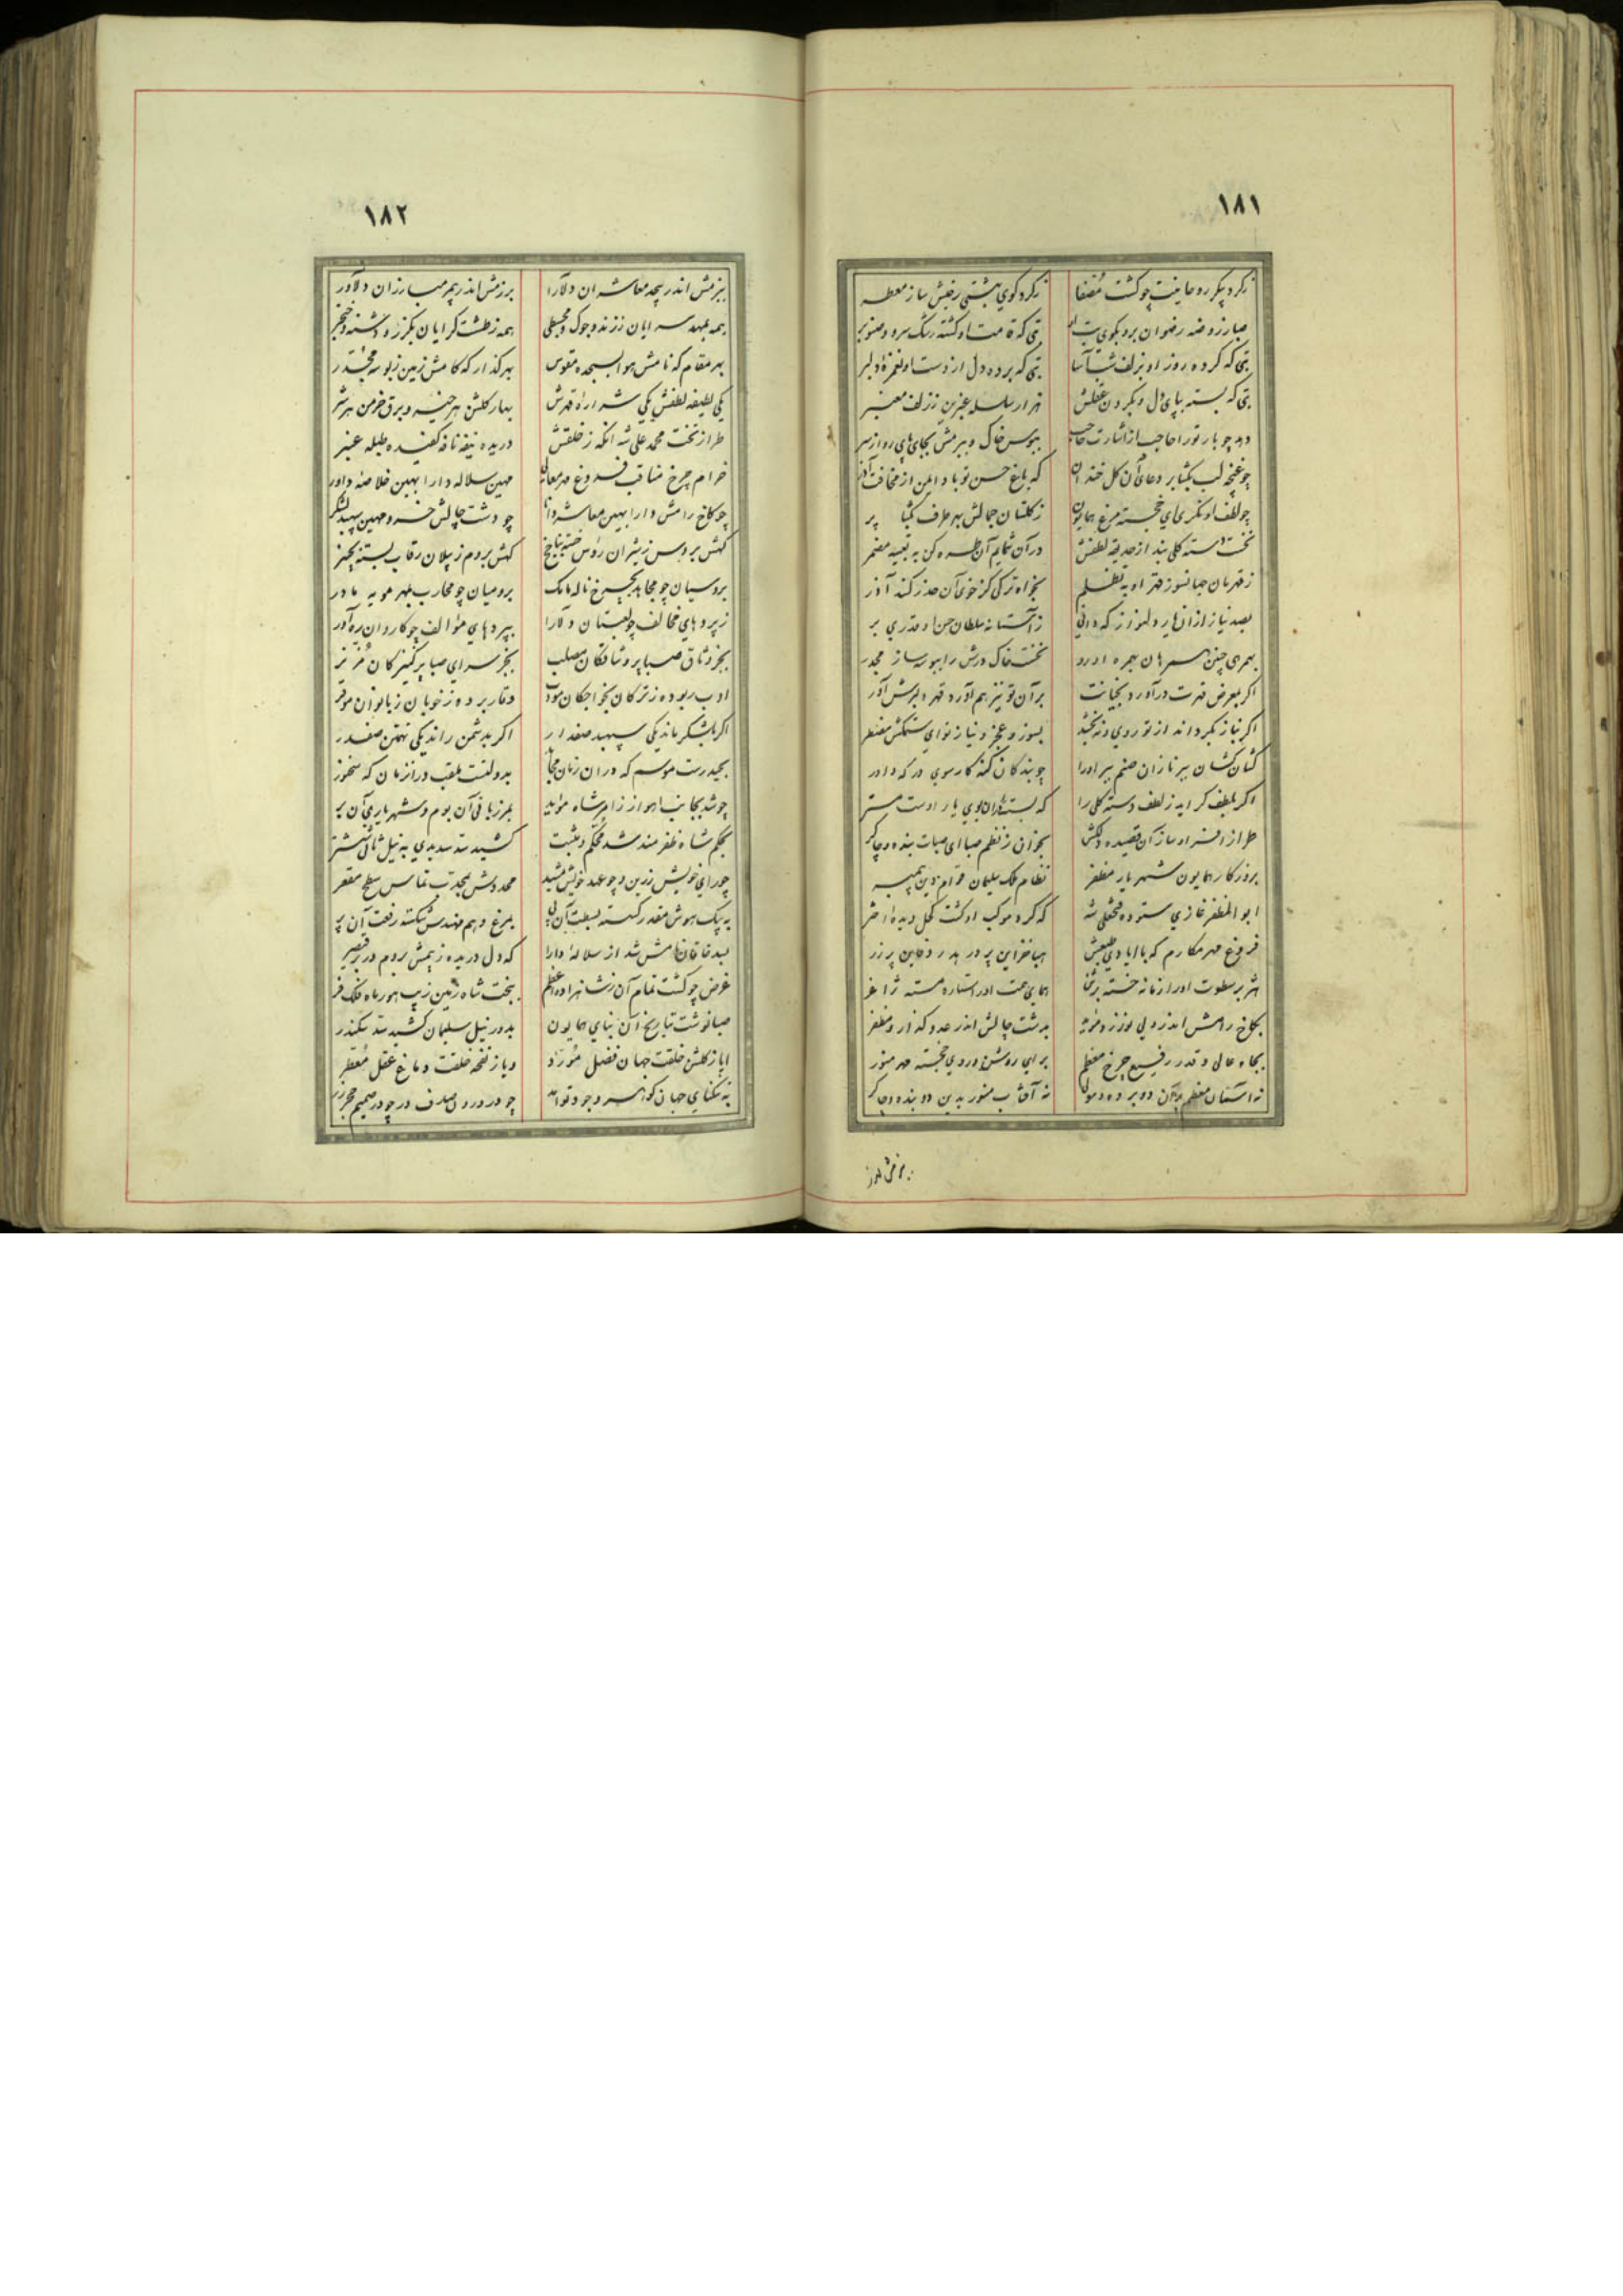 ١٨١
زکرد پیکر روحانیت چو کشت مصفا
زکرد کوی بهشتی رخیش ساز معطر
صبا ز روضه رضوان برو بکوی
بتی که قامت او کشته رشک سرو و صنوبر
بتی که کرده روز او بزلف شب آسا
بتی که برده دل از دست او بغمزه دلبر
بتی که بسته بپای دل و بکردن عقلش
هزار سلسله عنبرین ززلف معنبر
دهد چو بار تو را حاجب از اشارت حاجب
ببوس خاک و ببزمش بجای پای رو از سر
چو غنچه لب بکشا بر دعای آن کل خندان
که باغ حسن تو بادا ایمن از مخافت آذر
چو لطف او نکری ای خجسته مرغ همایون
ز کلستان جمالش بهر طرف بکشا پر
نخست دسته کلی بند از حدیقه لطفش
در آن شمایم آن طره کن به تعبیه مضمر
ز قهرمان جهانسوز قهر او به تظلم
بخواه ترکی کز خوی آن حذر کند آذر
بصد نیاز از آن یار دلنواز که دانی
ز آستانه سلطان حسن او قدری بر
نخست خاک درش را ببوسه ساز مجدر
اکر بمعرض قهرت در آورد بخیانت
بر آن تو نیز هم آور د قهر داورش آور
اکر نیاز بکرداند از تو روی و نبخشد
بسوز و عجز و نیاز نوای ستمکش مضطر
کشان کشان ببر نازان صنم ببر او را
چو بندکان کنه کار سوی درکه داور
اکر بلطف کراید ز لطف دسته کلی را
که بسته‌ای بوی یار اوست مستر
طراز افسر او ساز آن قصیده دلکش
بخوان ز نظم صبا ای صبات بنده و چاکر
بروزکار همایون شهریار مظفر
نظام ملک سلیمان قوام دین پیمبر
ابوالمظفر غازی ستوده فتحعلی شه
که کرد موکب او کشت کحل دیده اختر
فروغ مهر مکارم که با ایادی طبعش
هژبر سطوت او را زمانه خسته براثن
همای همت او را ستاره مسته ژاغر
بکاخ رامش اندر ولی نواز و مؤید
بدشت چالش اندر عدو کداز و مظفر
بجاه عالی و قدر رفیع چرخ معظم
برای روشن و روی خجسته مهر منور
نه آستان معظم بر آن دو برده و مولی
نه آفتاب منور بدین دو بنده و چاکر
ببزمش اندر
١٨٢
ببزمش اندر بیحد معاشران دلارا
برزمش اندر بیمر مبارزان دلاور
همه بمهد سرایان ززند و جوک و مجسطی
همه ز طشت کرایان بکرز و دشنه و خنجر
بهر مقام که نامش هوا بسجده مقوس
بهر کذار که کامش زمین ز بوسه مجدر
یکی لطیفه لطفش یکی شراره قهرش
بهار کلشن هر خیر و برق خرمن هر شر
طراز تخت محمد علی شه آنکه ز خلقش
دریده نیفه نافه کفیده طبله عنبر
خرام چرخ مناقب فروغ مهر معالی
مهین سلاله دارا بهین خلاصه داور
چو کاخ رامش دارا بهین معاشر دانا
چو دشت چالش خسرو مهین سپهبد لشکر
کهش بروس ز شیران رؤس خسته بناخج
کهش بروم ز پیلان رقاب بسته بچنبر
بروسیان چو مجاهد بچرخ ناله مامک
برومیان چو محارب بمهر مویه مادر
ز پردهای مخالف چو لعبتان دلارا
بپردهای مؤالف چو کاروان ره آور
بجز وثاق صبا پر وشاقکان مصلب
بجز سرای صبا پر کنیزکان مزنر
ادب ربوده ز ترکان بخواجکان مؤدب
وقار برده ز خوبان ز بانوان موقر
اکر بلشکر ماند یکی سپهبد صفدار
اکر بدشمن راند یکی تهمتن صفدر
بحیدرست موسم که در آن زمان مجاهد
بدولتست ملقب در آن زمان که سخنور
چو شد بجانب اهواز از امر شاه مؤید
بمرزبانی آن بوم و شهریاری آن بر
بحکم شاه ظفرمند شد محکم و مثبت
کشید سد سدیدی به نیل ثانی ششتر
چو رای خویش زرین و چو عهد خویش مشید
محدودش بمحدب مماس سطح مقعر
به پیک هوش مقدر کسته بسطت آن پی
بمرغ وهم مهندس شکسته رفعت آن پر
بسد خاقان نامش شد از سلاله دارا
که دل دریده ز بیمش بروم در بر قیصر
غرض چو کشت تمام آن ز شاهزاده اعظم
ببخت شاه زمین زیب هور ماه فلک فر
صبا نوشت بتاریخ آن بنای همایون
بدور نیل سلیمان کشید سد سکندر
ایا ز کلشن خلقت جهان فضل مورد
ویا ز نفخه خلقت دماغ عقل معطر
به تنکنای جهان کوهر وجود تو آمد
چو در درون صدف در چو در صمیم حجر زر